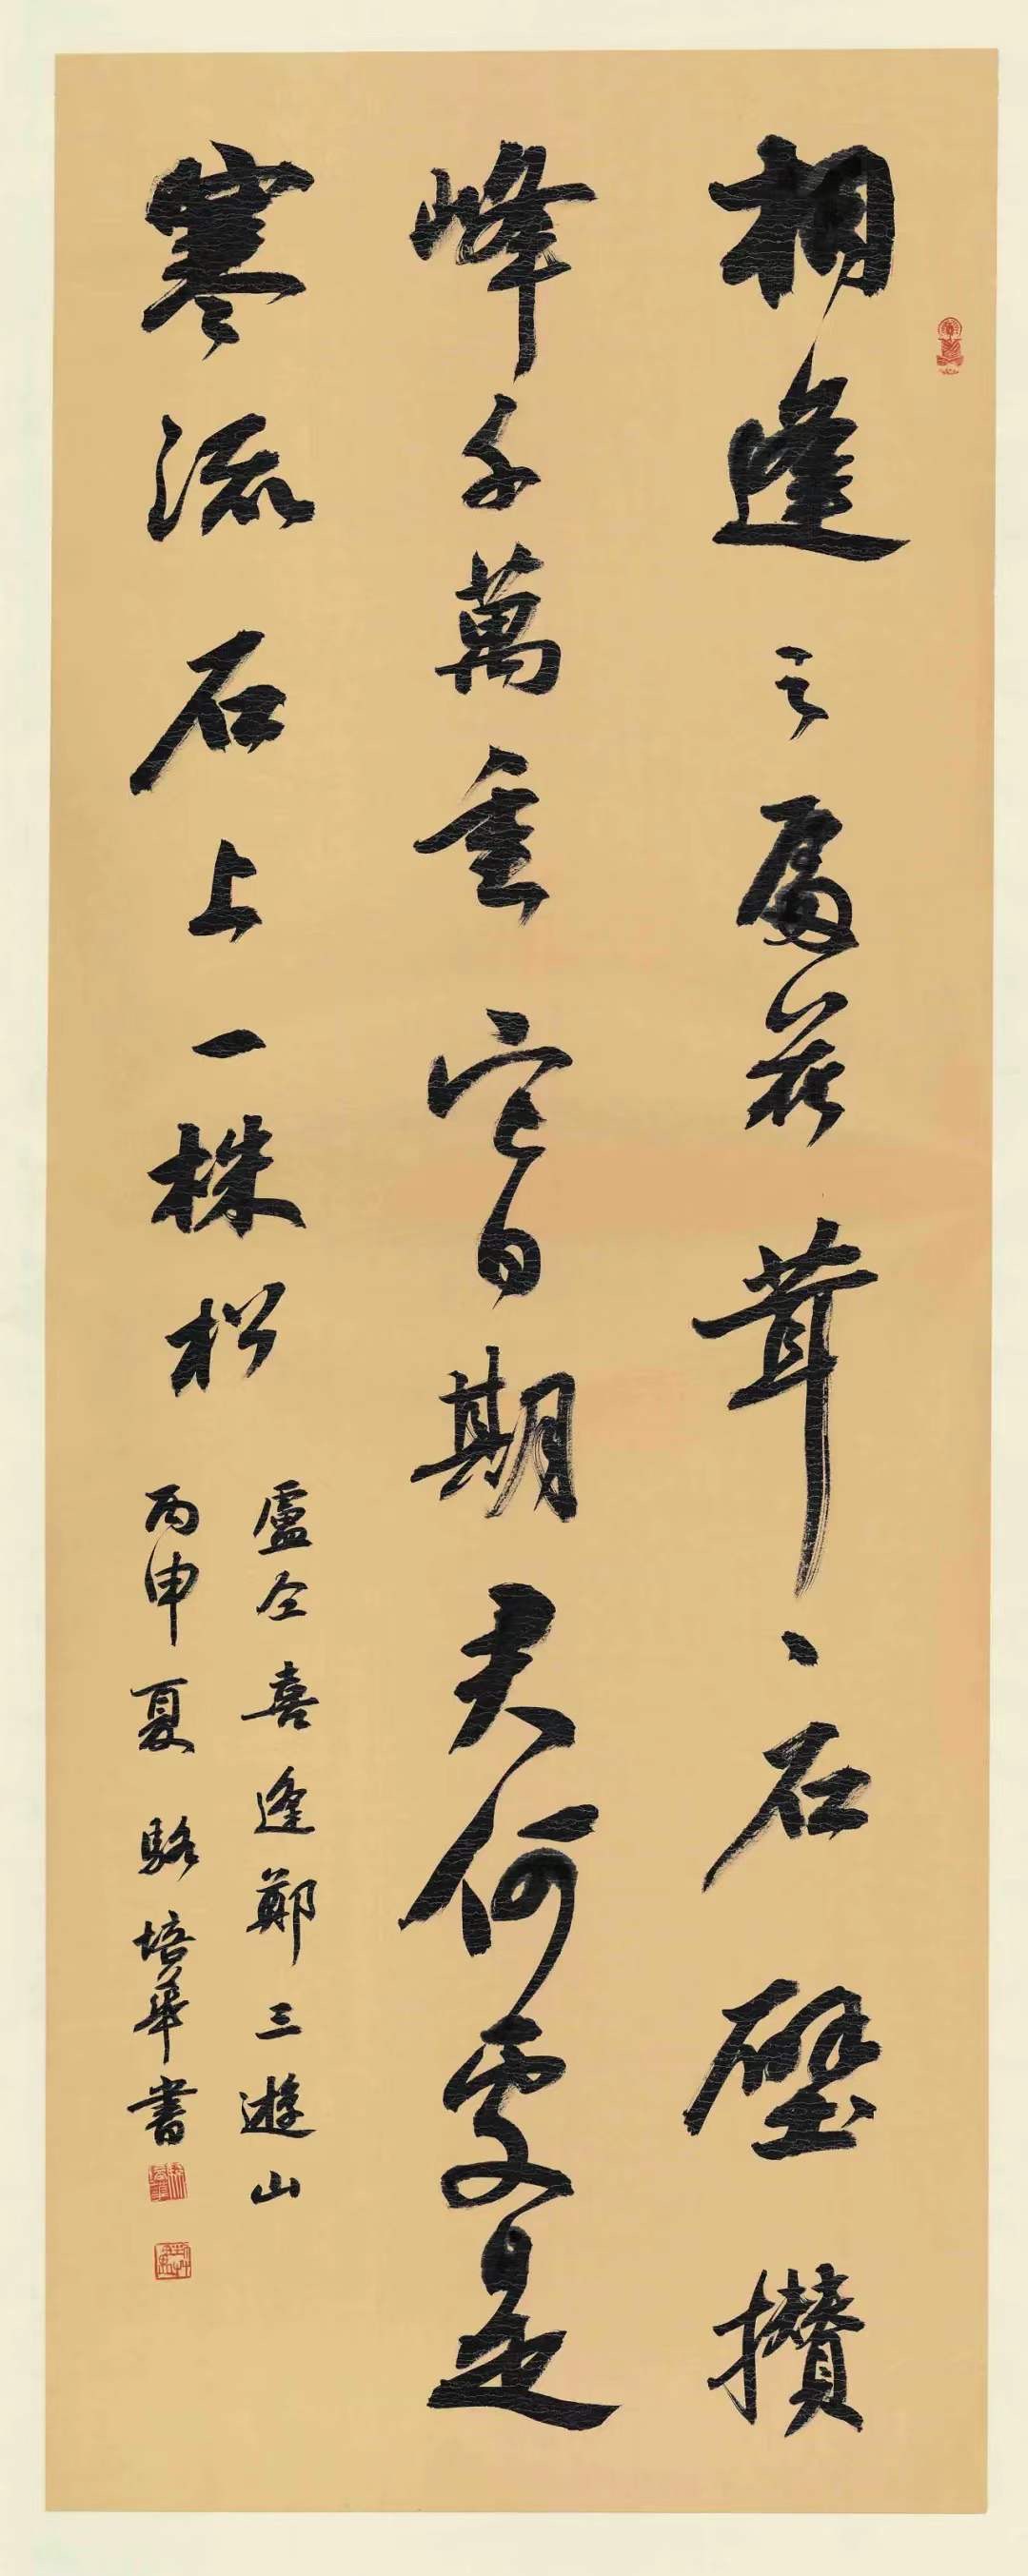 相逢之處花茸、石壁攢
峰千萬重它日期君何處是
寒流石上一株松
盧仝喜逢鄭三遊山
丙申夏駱培華書